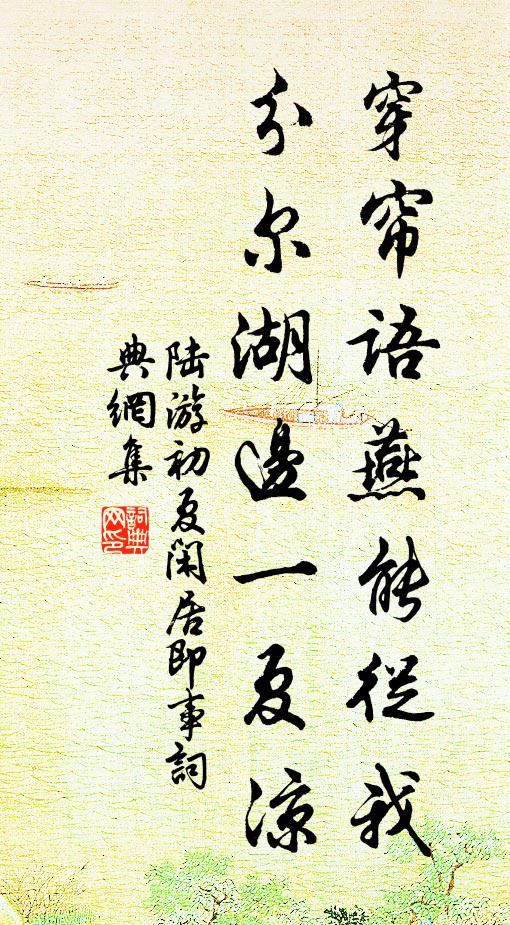 穿帘语燕能從我
分尔湖邊一夏凉
陆游初夏闲居即事詞
典網集
詞典网印